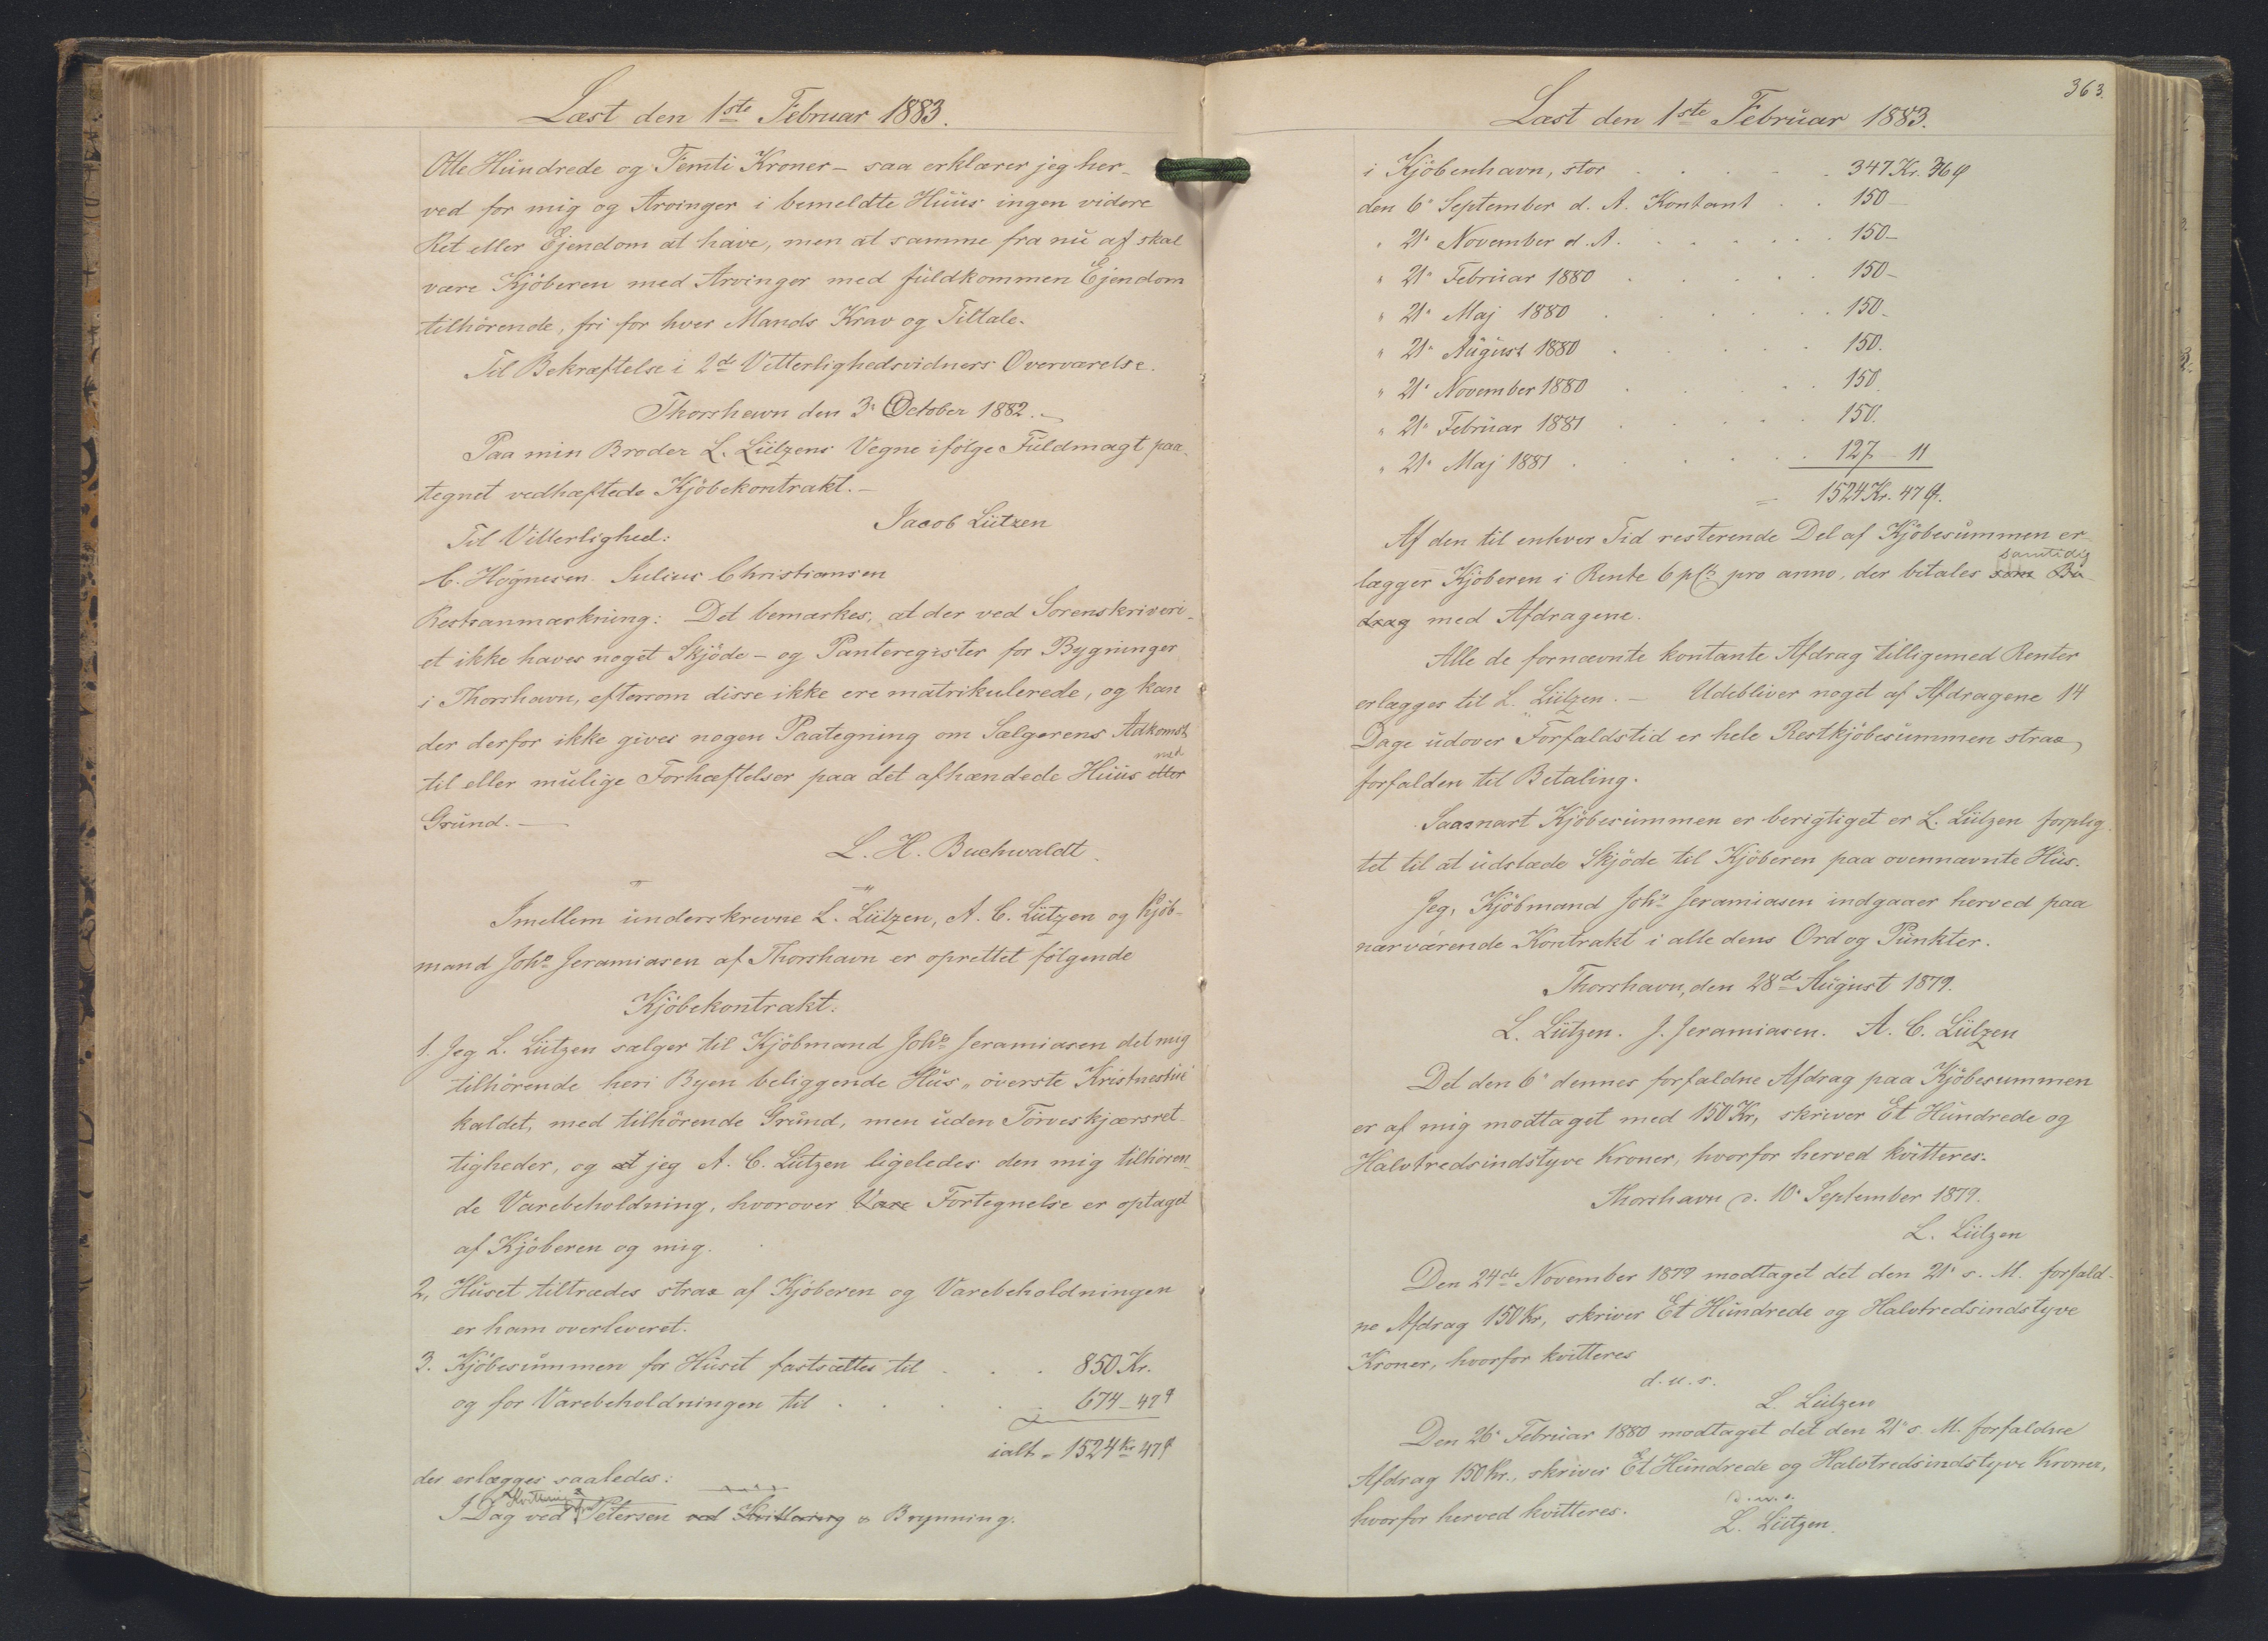 Læst den 1ste Februar 1883.
Otte Hundrede og Femti Kroner - saa erklærer jeg her-
ved for mig og Arvinger i bemeldte Huus ingen videre
Ret eller Ejendom at have, men at samme fra nu af skal
være Kjöberen med Arvinger med fuldkommen Ejendom
tilhörende, fri for hver Mands Krav og Tiltale.
Til Bekræftelse i 2de Vitterlighedsvidners Overværelse.
Thorshavn den 3' October 1882.
Paa min Broder L. Lützens Vegne ifölge Fuldmagt paa-
tegnet vedhæftede Kjöbekontrakt.-
Jacob Lützen
Til Vitterlighed:
C. Högnesen Julius Christiansen
Restsanmærkning: Det bemærkes, at der ved Sorenskriveri-
et ikke haves noget Skjöde- og Panteregister for Bygninger
i Thorshavn, eftersom disse ikke ere matrikulerede, og kan
der derfor ikke gives nogen Paategning om Sælgerens Adkomst
til eller mulige Forhæftelser paa det afhændede Huus eller med
Grund.-
L. H. Buchwaldt
Imellem underskrevne L. Lützen, A. C. Lützen og Kjöb-
mand Johs Jeramiasen af Thorshavn er oprettet fölgende
Kjöbekontrakt.
1. Jeg L. Lützen sælger til Kjöbmand Johs Jeramiasen det mig
tilhörende heri Byen beliggende Hus, överste Kristnestue
kaldet, med tilhörende Grund, men uden Törveskjærsret-
tigheder, og at jeg A. C. Lützen ligeledes den mig tilhören-
de Varebeholdning, hvorover Vare Fortegnelse er optaget
af Kjöberen og mig.
2, Huset tiltrædes strax af Kjöberen og Varebeholdningen
er ham overleveret.
3. Kjöbesummen for Huset fastsættes til . . . 850 Kr.
og for Varebeholdningen til . . . . 674 - 47 ø
ialt = 1524 Kr 47 ø
der erlægges saaledes:
I Dag ved Kvittering fra Petersen ved Kvittering & Brynning.
363.
Læst den 1ste Februar 1883.
i Kjöbenhavn, stor . . . . . 347 Kr. 36 ø
den 6' September d. A. Kontant . . 150 -
" 21' November d. A. . . . . . 150 -
" 21' Februar 1880 . . . . 150 -
" 21' Maj 1880 . . . . . 150.
" 21' August 1880 . . . . 150.
" 21' November 1880 . . . . 150.
" 21' Februar 1881 . . . . 150.
" 21' Maj 1881 . . . . . 127 - 11
= 1524 Kr. 47 ø.
Af den til enhver Tid resterende Del af Kjöbesummen er-
lægger Kjöberen i Rente 6 pCt pro anno, der betales som Bi- samtidig
drag med Afdragene.
Alle de fornævnte kontante Afdrag tilligemed Renter
erlægges til L. Lützen. - Udebliver noget af Afdragene 14
Dage udover Forfaldstid er hele Restkjöbesummen strax
forfalden til Betaling.
Saasnart Kjöbesummen er berigtiget er L. Lützen forplig-
tet til at udstæde Skjöde til Kjöberen paa ovennævnte Hus.
Jeg, Kjöbmand Johs Jeramiasen indgaaer herved paa
nærværende Kontrakt i alle dens Ord og Punkter.
Thorshavn, den 28de August 1879.
L. Lützen. J. Jeramiasen. A. C. Lützen
Det den 6' dennes forfaldne Afdrag paa Kjöbesummen
er af mig modtaget med 150 Kr, skriver Et Hundrede og
Halvtredsindstyve Kroner, hvorfor herved kvitteres.
Thorshavn d. 10' September 1879.
L. Lützen
Den 24de November 1879 modtaget det den 21' s. M. forfald-
ne Afdrag 150 Kr, skriver Et Hundrede og Halvtredsindstyve
Kroner, hvorfor kvitteres
d.u.s.
L. Lützen
Den 26' Februar 1880 modtaget det den 21' s. M. forfaldne
Afdrag 150 Kr., skriver Et Hundrede og Halvtredsindstyve Kroner,
hvorfor herved kvitteres. D.u.s.
L. Lützen.